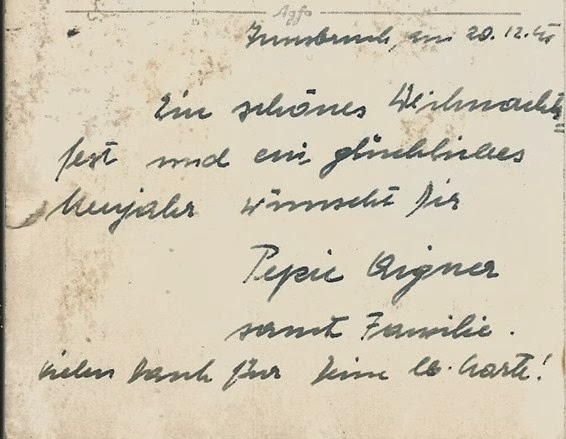 Agfa
Innsbruck, am 20.12.
Ein schönes Weihnachts=
fest und ein glückliches
Neujahr wünscht Dir
Pepie Aigner
samt Familie.
Vielen Dank für Deine lb. Karte!